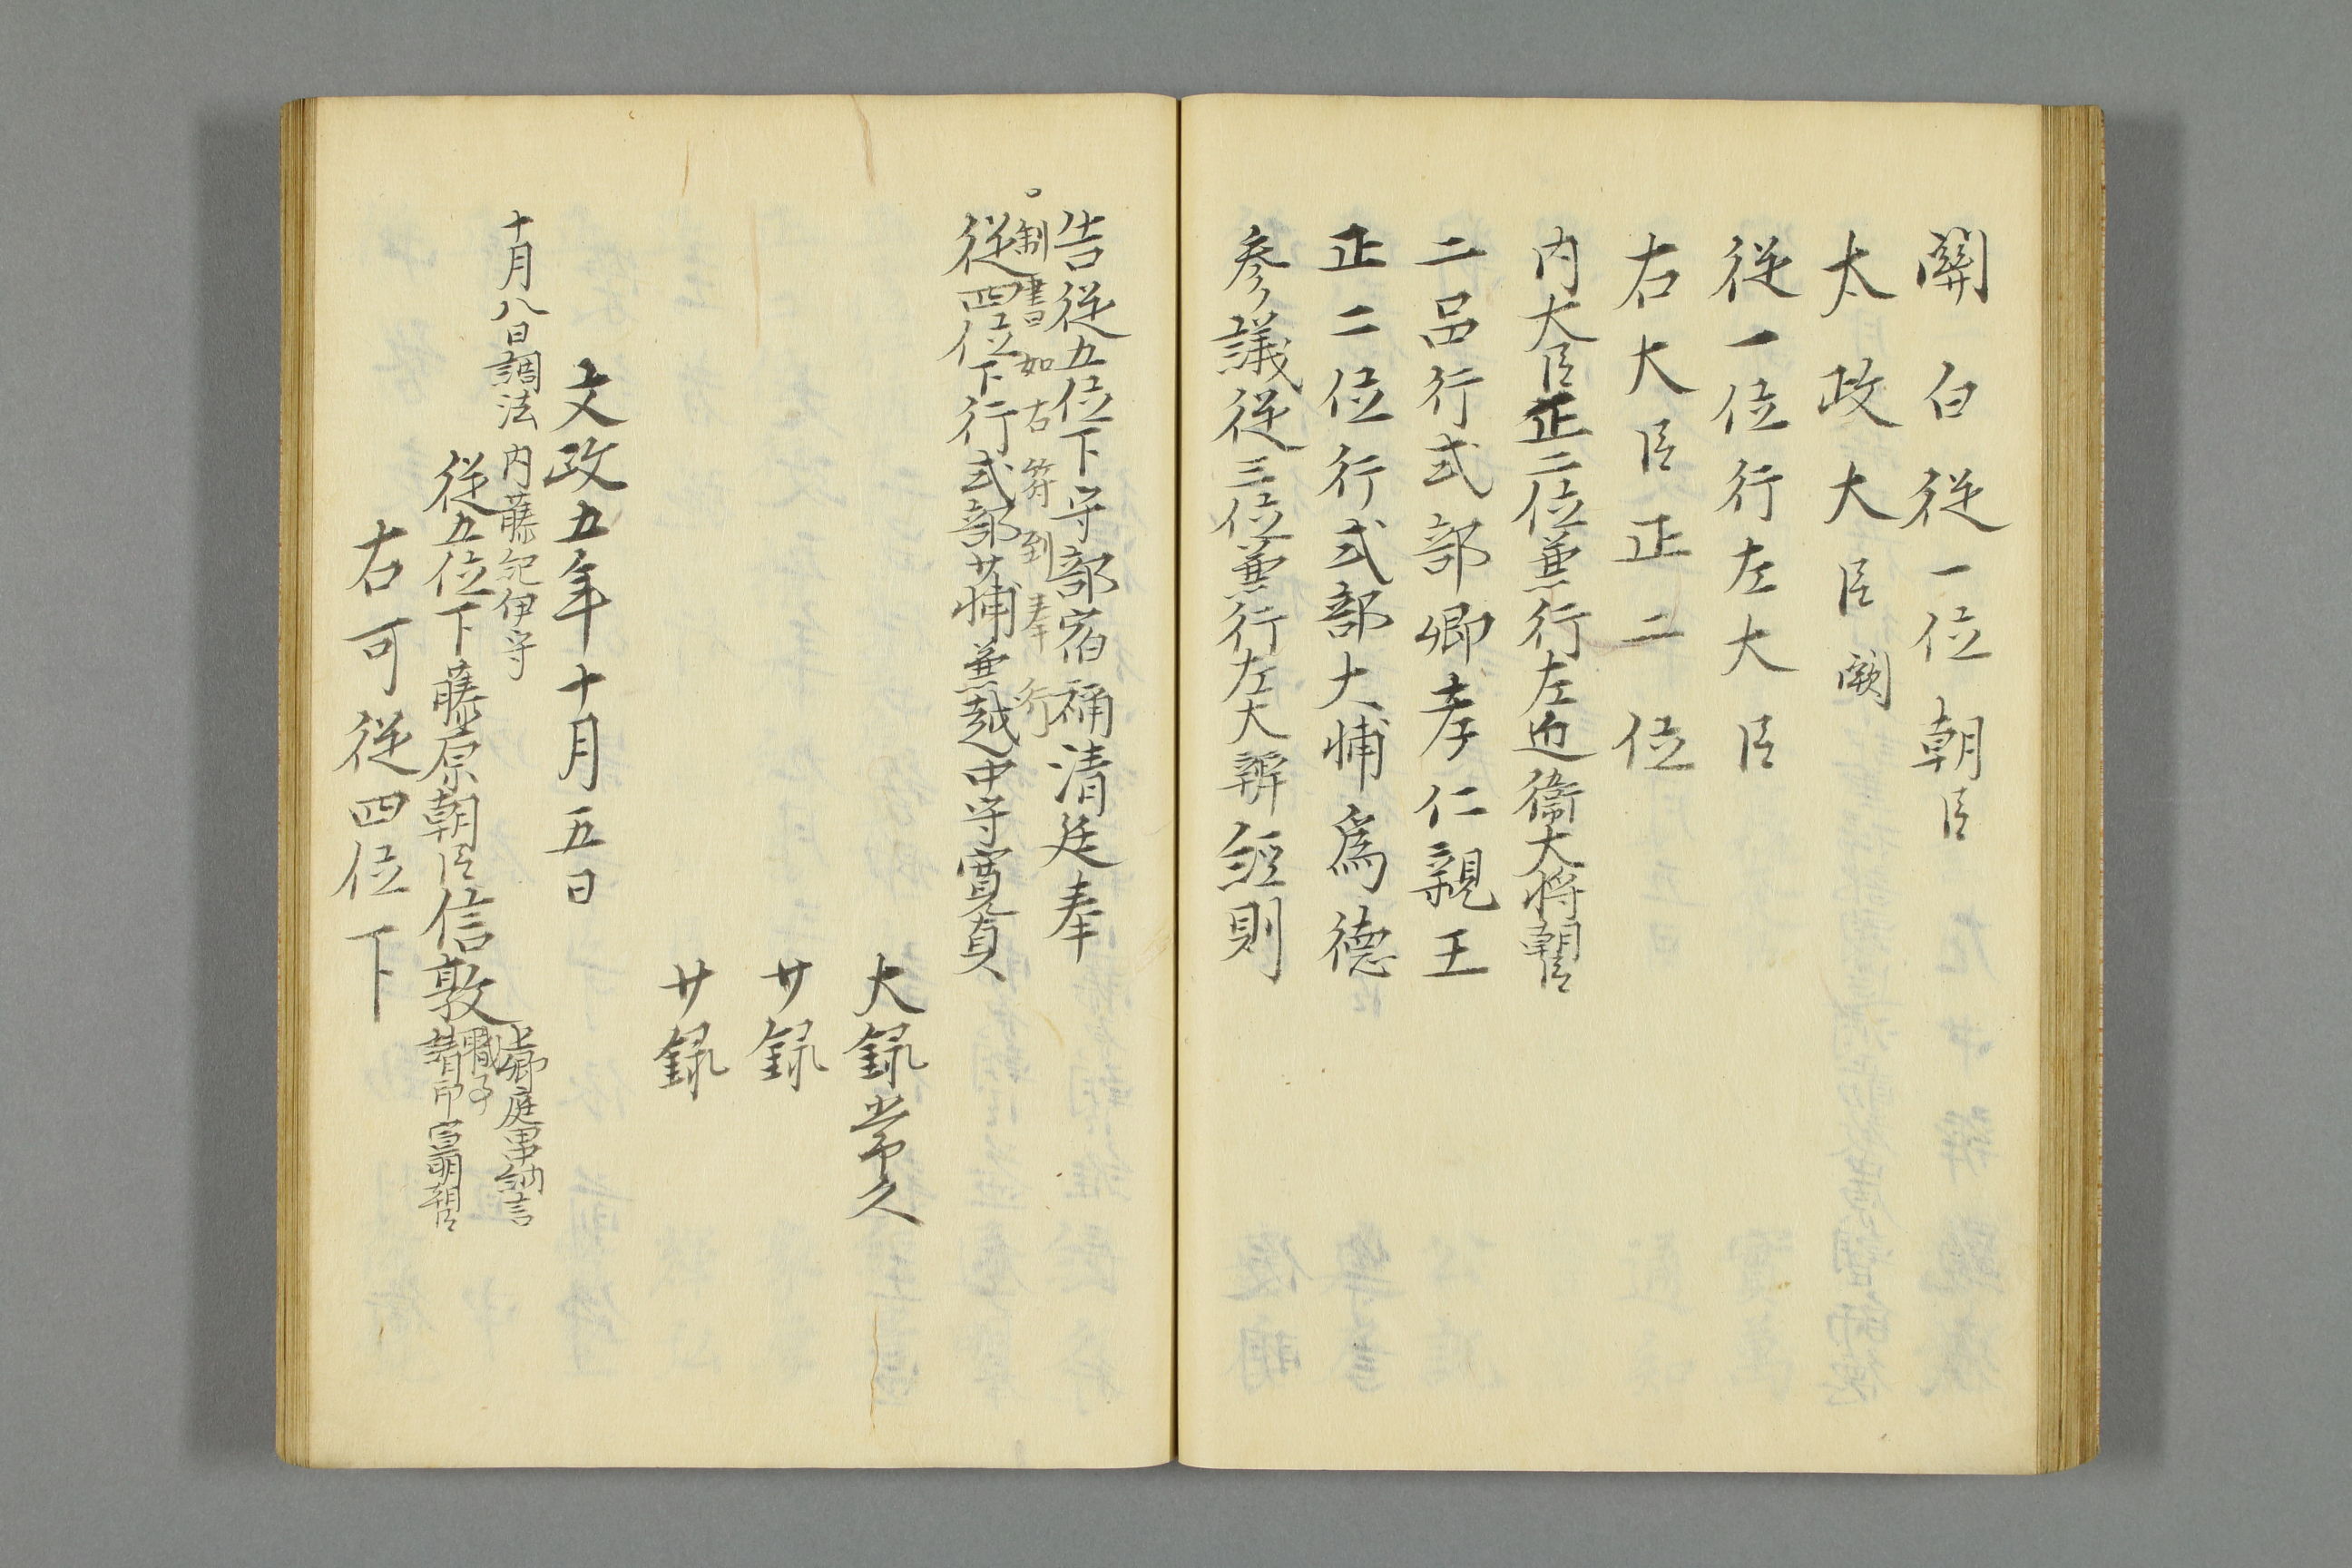 関白従一位朝臣
太政大臣闕
従一位行左大臣
右大臣正二位
内大臣正二位兼行左近衛大将朝臣
二品行式部卿孝仁親王
正二位行式部大輔為徳
参議従三位兼行左大辨経則
告従五位下守部宿祢清廷奉
制書如右符到奉行
従四位下行式部少輔兼越中守寛貞
大録常久
少録
少録
文政五年十月五日
十月八日調法 内藤紀伊守
従五位下藤原朝臣信敦
上卿庭田中納言
職事
請印 朝臣
右可従四位下